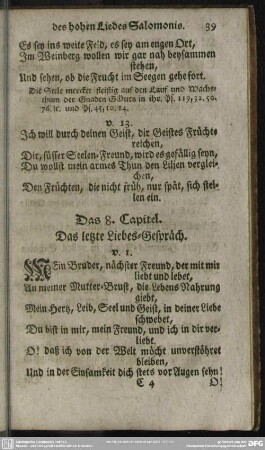 des hohen Liedes Salomonis. 39
Es sey ins weite Feld, es sey am engen Ort,
Im Weinberg wollen wir gar nah beysammen
stehen,
Und sehen, ob die Frucht im Seegen gehe fort.
Die Seele mercket fleißig auf den Lauf und Wachs-
thum der Gnaden GOttes in ihr. Ps. 119, 32. 50.
76. ꝛc. und Ps. 45, 10. 14.
v. 13.
Ich will durch deinen Geist, dir Geistes Früchte
reichen,
Dir, süsser Seelen-Freund, wird es gefällig seyn,
Du wollst mein armes Thun den Lilien verglei-
chen,
Den Früchten, die nicht früh, nur spät, sich stel-
len ein.
Das 8. Capitel.
Das letzte Liebes-Gespräch.
v. 1.
MEin Bruder, nächster Freund, der mit mir
liebt und lebet,
An meiner Mutter-Brust, die Lebens Nahrung
giebt,
Mein Hertz, Leib, Seel und Geist, in deiner Liebe
schwebet,
Du bist in mir, mein Freund, und ich in dir ver-
liebt.
O! daß ich von der Welt möcht unverstöhret
bleiben,
Und in der Einsamkeit dich stets vor Augen sehn!
C 4 O!